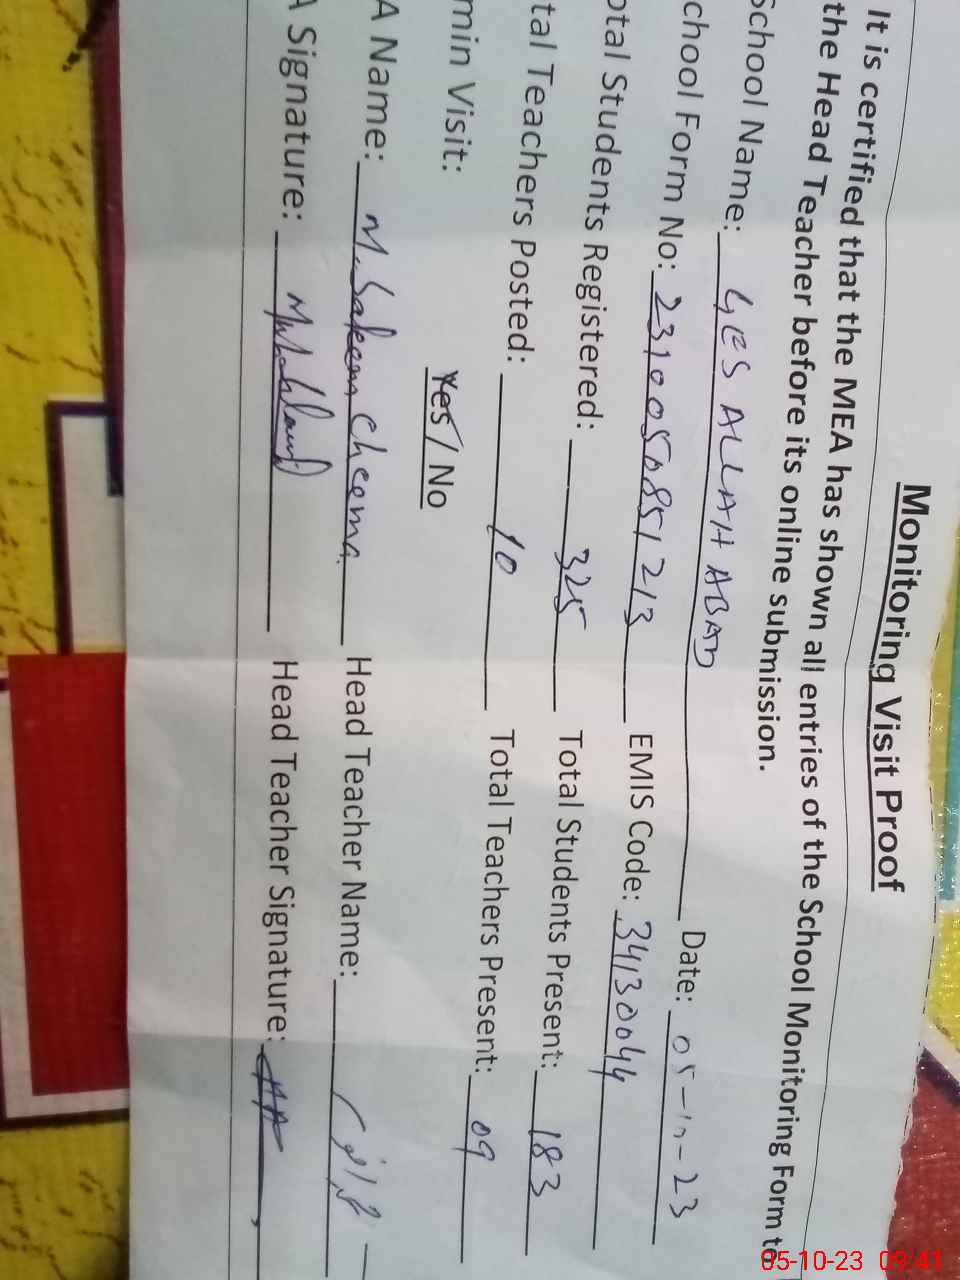 Monitoring Visit Proof
It is certified that the MEA has shown all entries of the School Monitoring Form to
the Head Teacher before its online submission.
School Name: GES ALLAH ABAD Date: 05-10-23
chool Form No: 2310050851213 EMIS Code: 34130044
otal Students Registered: 325 Total Students Present: 183
tal Teachers Posted: 10 Total Teachers Present: 09
min Visit: Yes / No
A Name: M. Saleem Cheema Head Teacher Name:
A Signature: Head Teacher Signature:
05-10-23 09:41